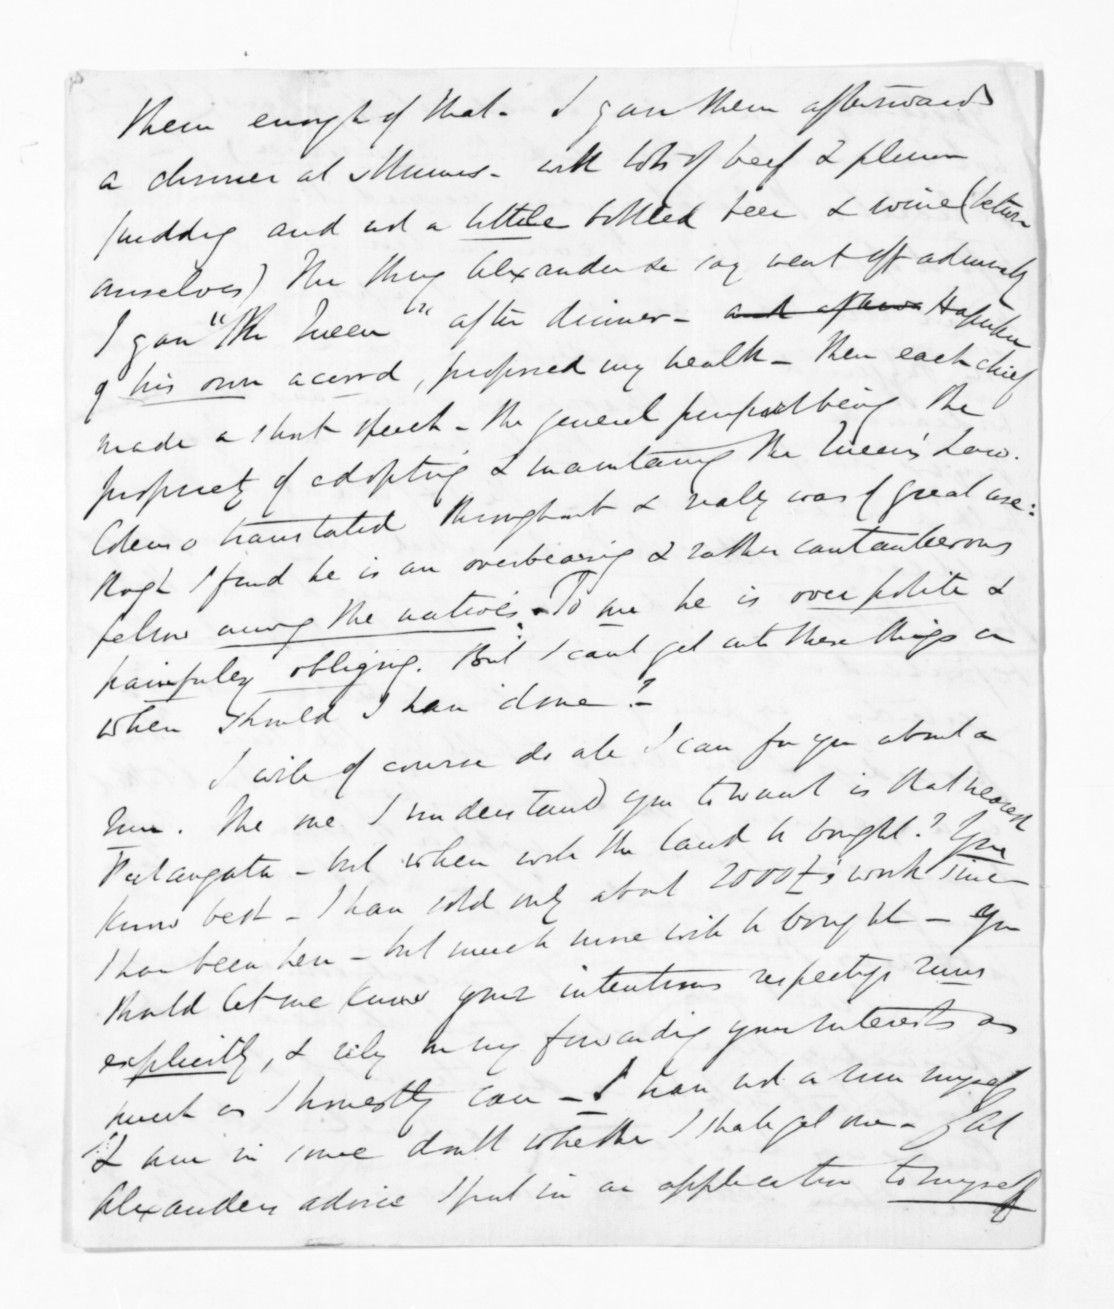 them enough of that. I gave them afterwards
a dinner at Munn's - with lots of beef & plum
pudding and not a little bottled beer & wine (between
ourselves) The thing Alexander se say went off admirably
I gave "The Queen" after dinner - and afterw Hapuku
of his own accord, proposed my health - then each chief
made a short speech - the general purport being the
propriety of adopting & maintaining the Queen's Law.
Colenso translated throughout & really was of great use:
though I find he is an overbearing & rather cantankerous
fellow among the natives. To me he is over polite &
painfully obliging. But I can't get into these things or
when should I have done? -
I will of course do all I can for you about a
run. The one I understand you to want is that nearest
Patangata - but when will the land be bought? You
know best - I have sold only about 2000£'s worth since
I have been here - but much more will be bought - you
should let me know your intentions respectg runs
explicitly, & rely on my forwarding your interests as
much as I honestly can - I have not a run myself
& am in some doubt whether I shall get one - I at
Alexanders advice I put in an application to myself